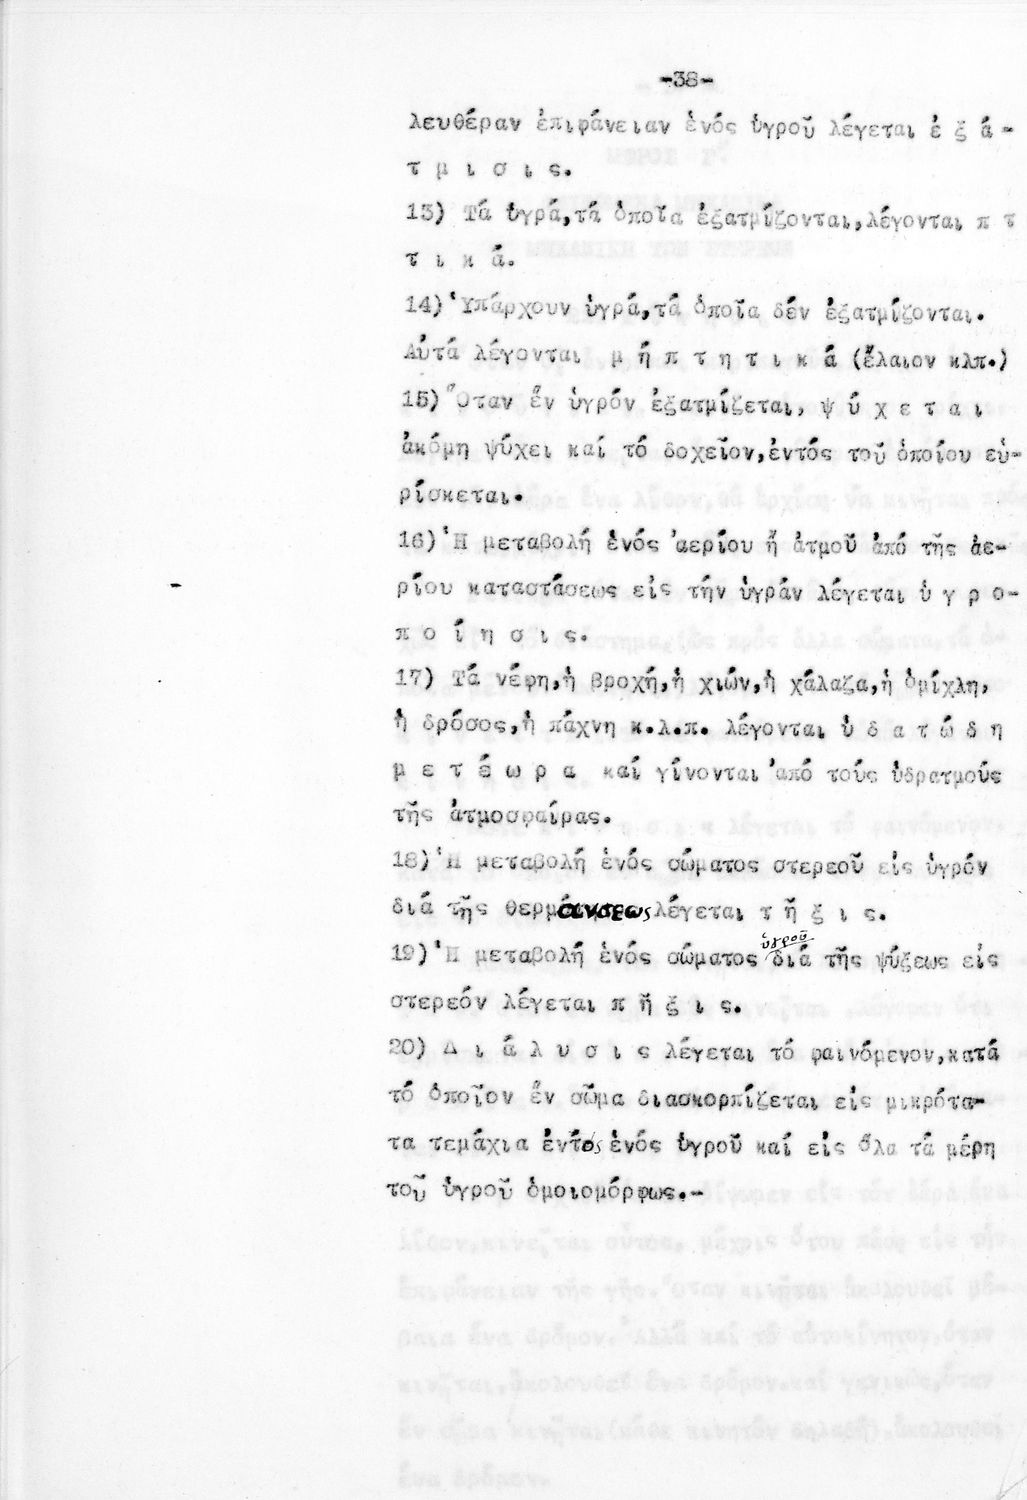 -38-
λευθέραν ἐπιφάνειαν ἑνός ὑγροῦ λέγεται ἐ ξ ά -
τ μ ι σ ι ς.
13) Τά ὑγρά,τά ὁποῖα ἐξατμίζονται,λέγονται π τ
τ ι κ ά.
14)Ὑπάρχουν ὑγρά,τά ὁποῖα δέν ἐξατμίζονται.
Αὐτά λέγονται μ ή π τ η τ ι κ ά (ἔλαιον κλπ.)
15)Ὅταν ἕν ὑγρόν ἐξατμίζεται, ψ ύ χ ε τ α ι
ἀκόμη ψύχει καί τό δοχεῖον,ἐντός τοῦ ὁποίου εὑ-
ρίσκεται.
16)Ἡ μεταβολή ἑνός ἀερίου ἤ ἀτμοῦ ἀπό τῆς ἀε-
ρίου καταστάσεως εἰς τήν ὑγράν λέγεται ὑ γ ρ ο-
π ο ί η σ ι ς.
17) Τά νέφη,ἡ βροχή,ἡ χιών,ἡ χάλαζα,ἡ ὁμίχλη,
ἡ δρόσος,ἡ πάχνη κ.λ.π. λέγονται ὑ δ α τ ώ δ η
μ ε τ έ ω ρ α καί γίνονται ἀπό τούς ὑδρατμούς
τῆς ἀτμοσφαίρας.
18)Ἡ μεταβολή ἑνός σώματος στερεοῦ εἰς ὑγρόν
διά τῆς θερμάνσεως λέγεται τ ῆ ξ ι ς.
19)Ἡ μεταβολή ἑνός σώματος ὑγροῦ διά τῆς ψύξεως εἰς
στερεόν λέγεται π ῆ ξ ι ς.
20) Δ ι ά λ υ σ ι ς λέγεται τό φαινόμενον,κατά
τό ὁποῖον ἕν σῶμα διασκορπίζεται εἰς μικρότα-
τα τεμάχια ἐντός ἑνός ὑγροῦ καί εἰς ὅλα τά μέρη
τοῦ ὑγροῦ ὁμοιομόρφως.-